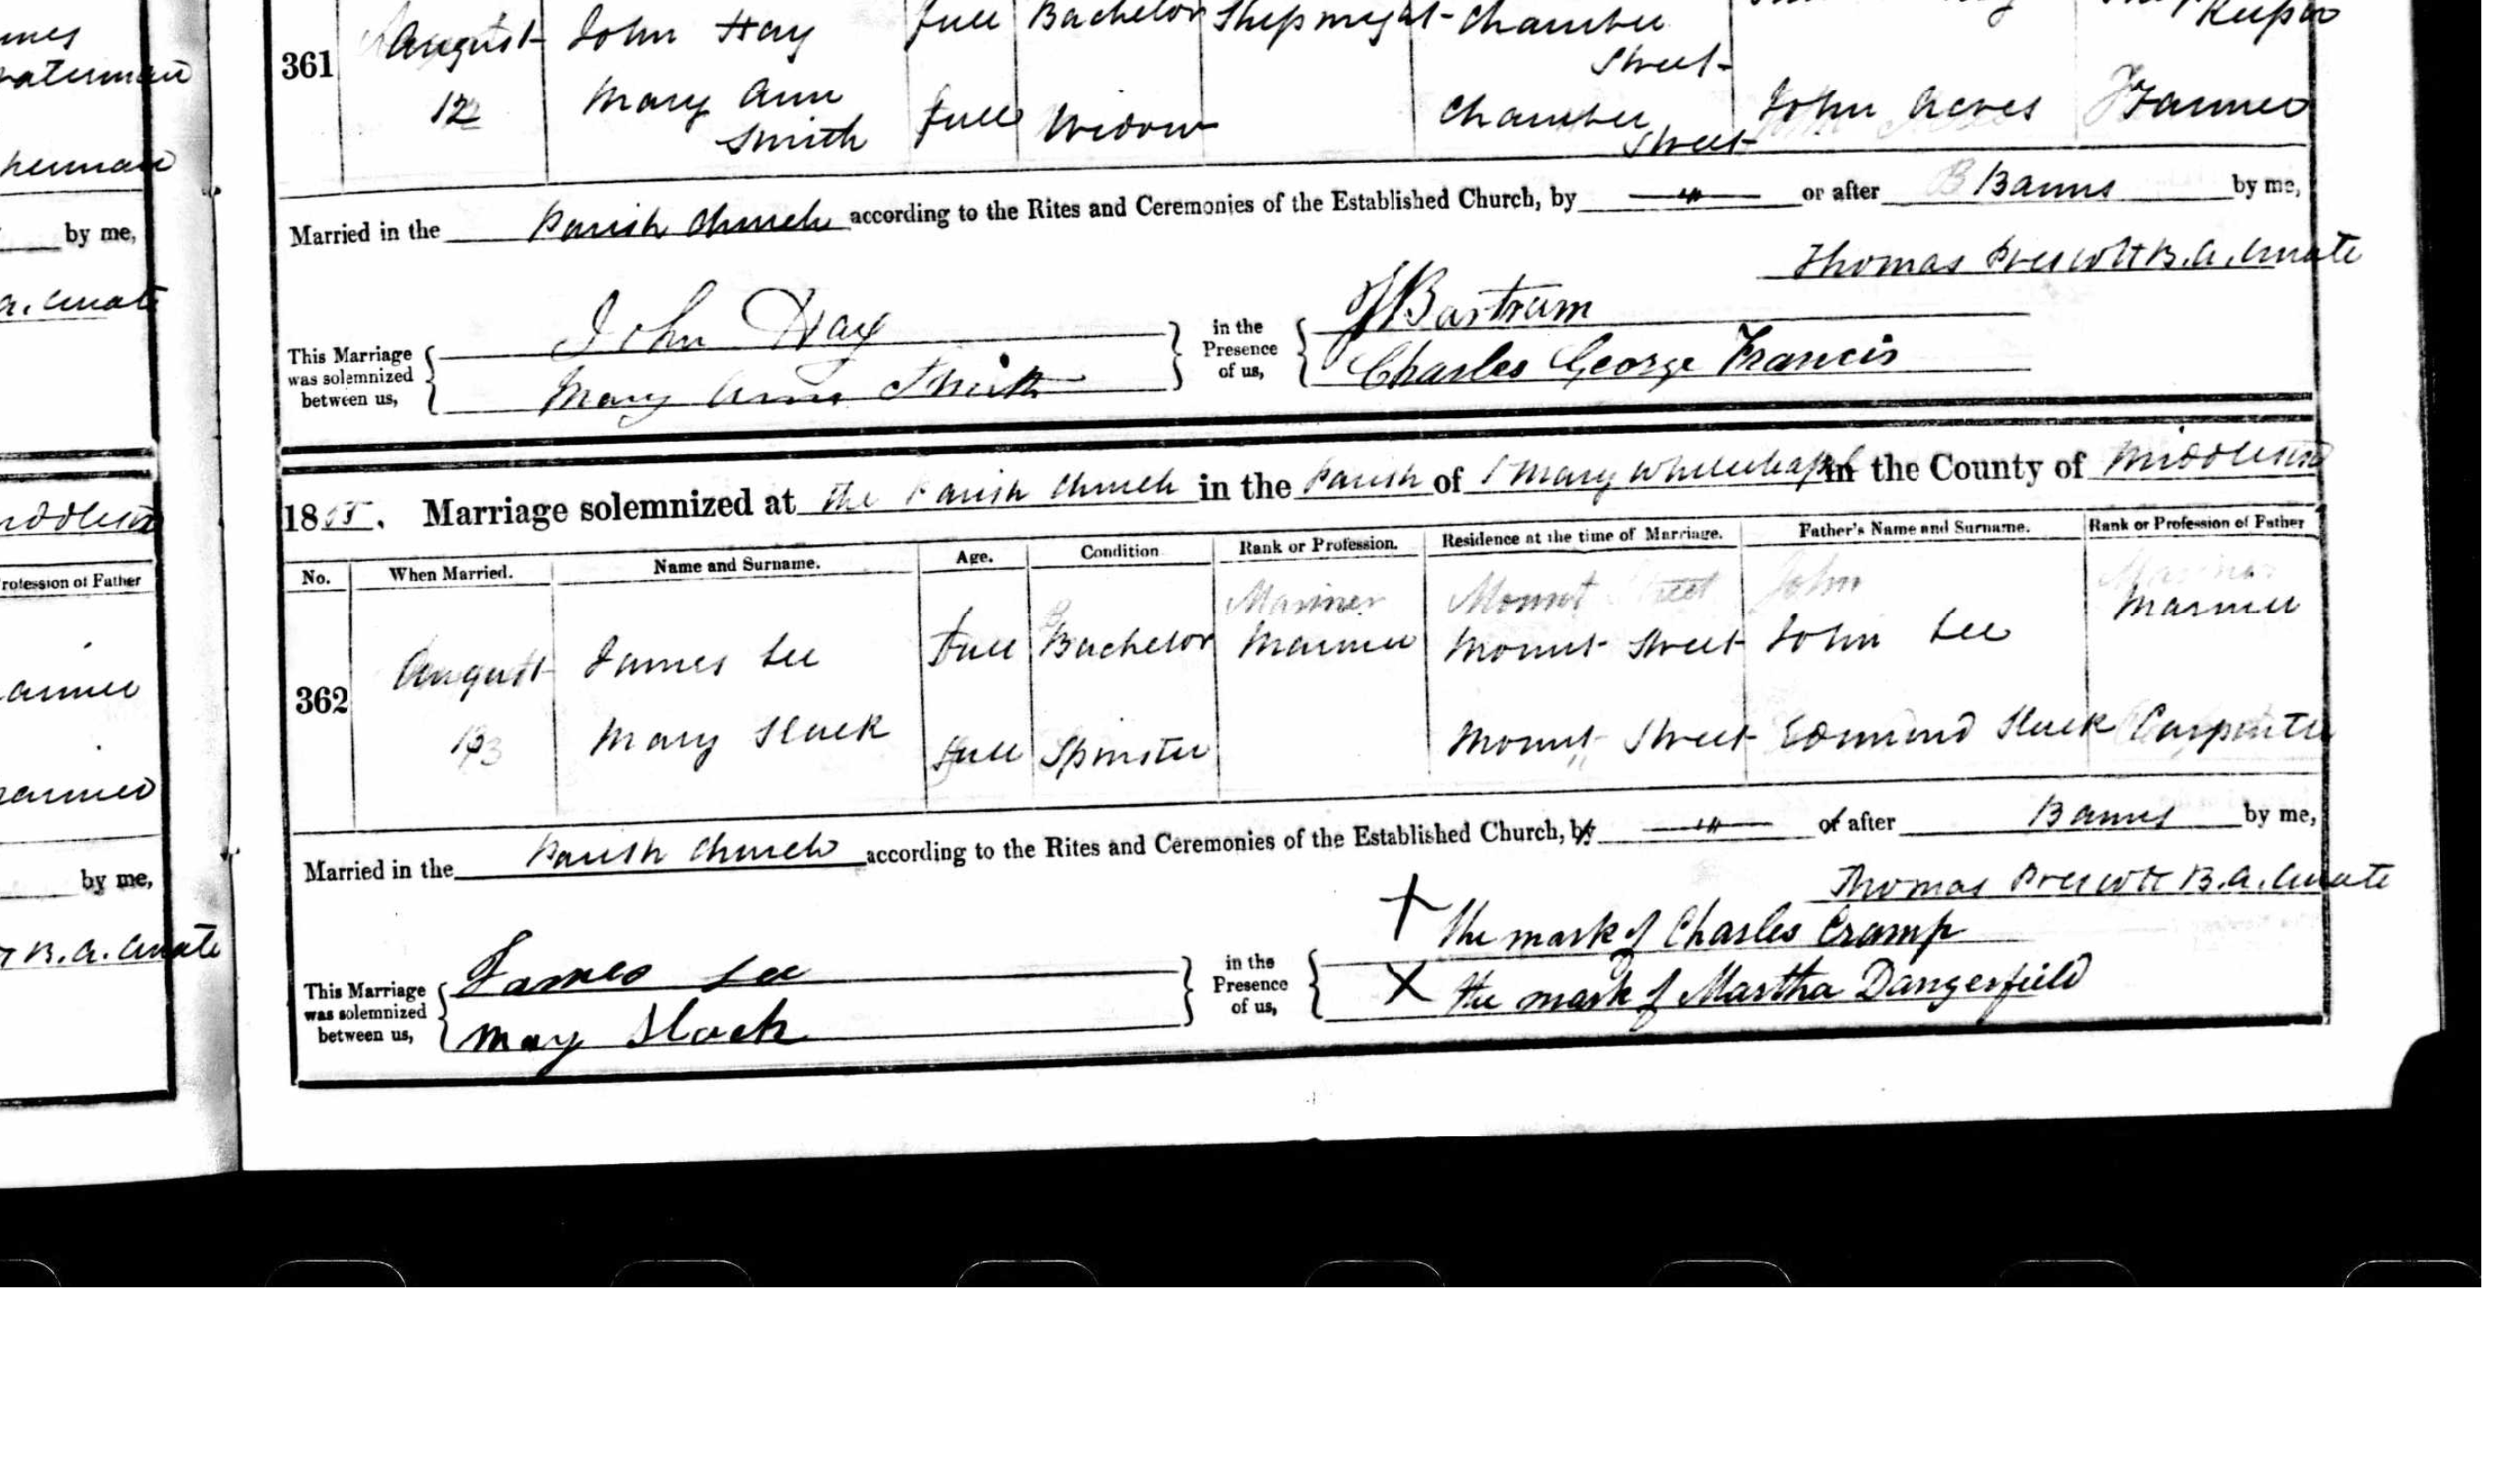 Keeper
361 August John Hay full Bachelor Shipwright Chamber Street
12 Mary Ann Smith full Widow Chamber Street John Acres Farmer
Married in the Parish Church according to the Rites and Ceremonies of the Established Church, by or after Banns by me,
Thomas Prescott B.A. Curate
This Marriage was solemnized between us, John Hay Mary Ann Smith in the Presence of us, Bartram Charles George Francis
1855. Marriage solemnized at the Parish Church in the Parish of St Mary Whitechapel in the County of Middlesex
No. When Married. Name and Surname. Age. Condition Rank or Profession. Residence at the time of Marriage. Father's Name and Surname. Rank or Profession of Father
Mariner Mount Street John Mariner
362 August James Lee full Bachelor Mariner Mount Street John Lee Mariner
13 Mary Slack full Spinster Mount Street Edmund Slack Carpenter
Married in the Parish Church according to the Rites and Ceremonies of the Established Church, by or after Banns by me,
Thomas Prescott B.A. Curate
This Marriage was solemnized between us, James Lee Mary Slack in the Presence of us, X The mark of Charles Cramp X the mark of Martha Dangerfield
waterman
by me,
a. Curate
Middlesex
Profession of Father
by me,
B.A. Curate